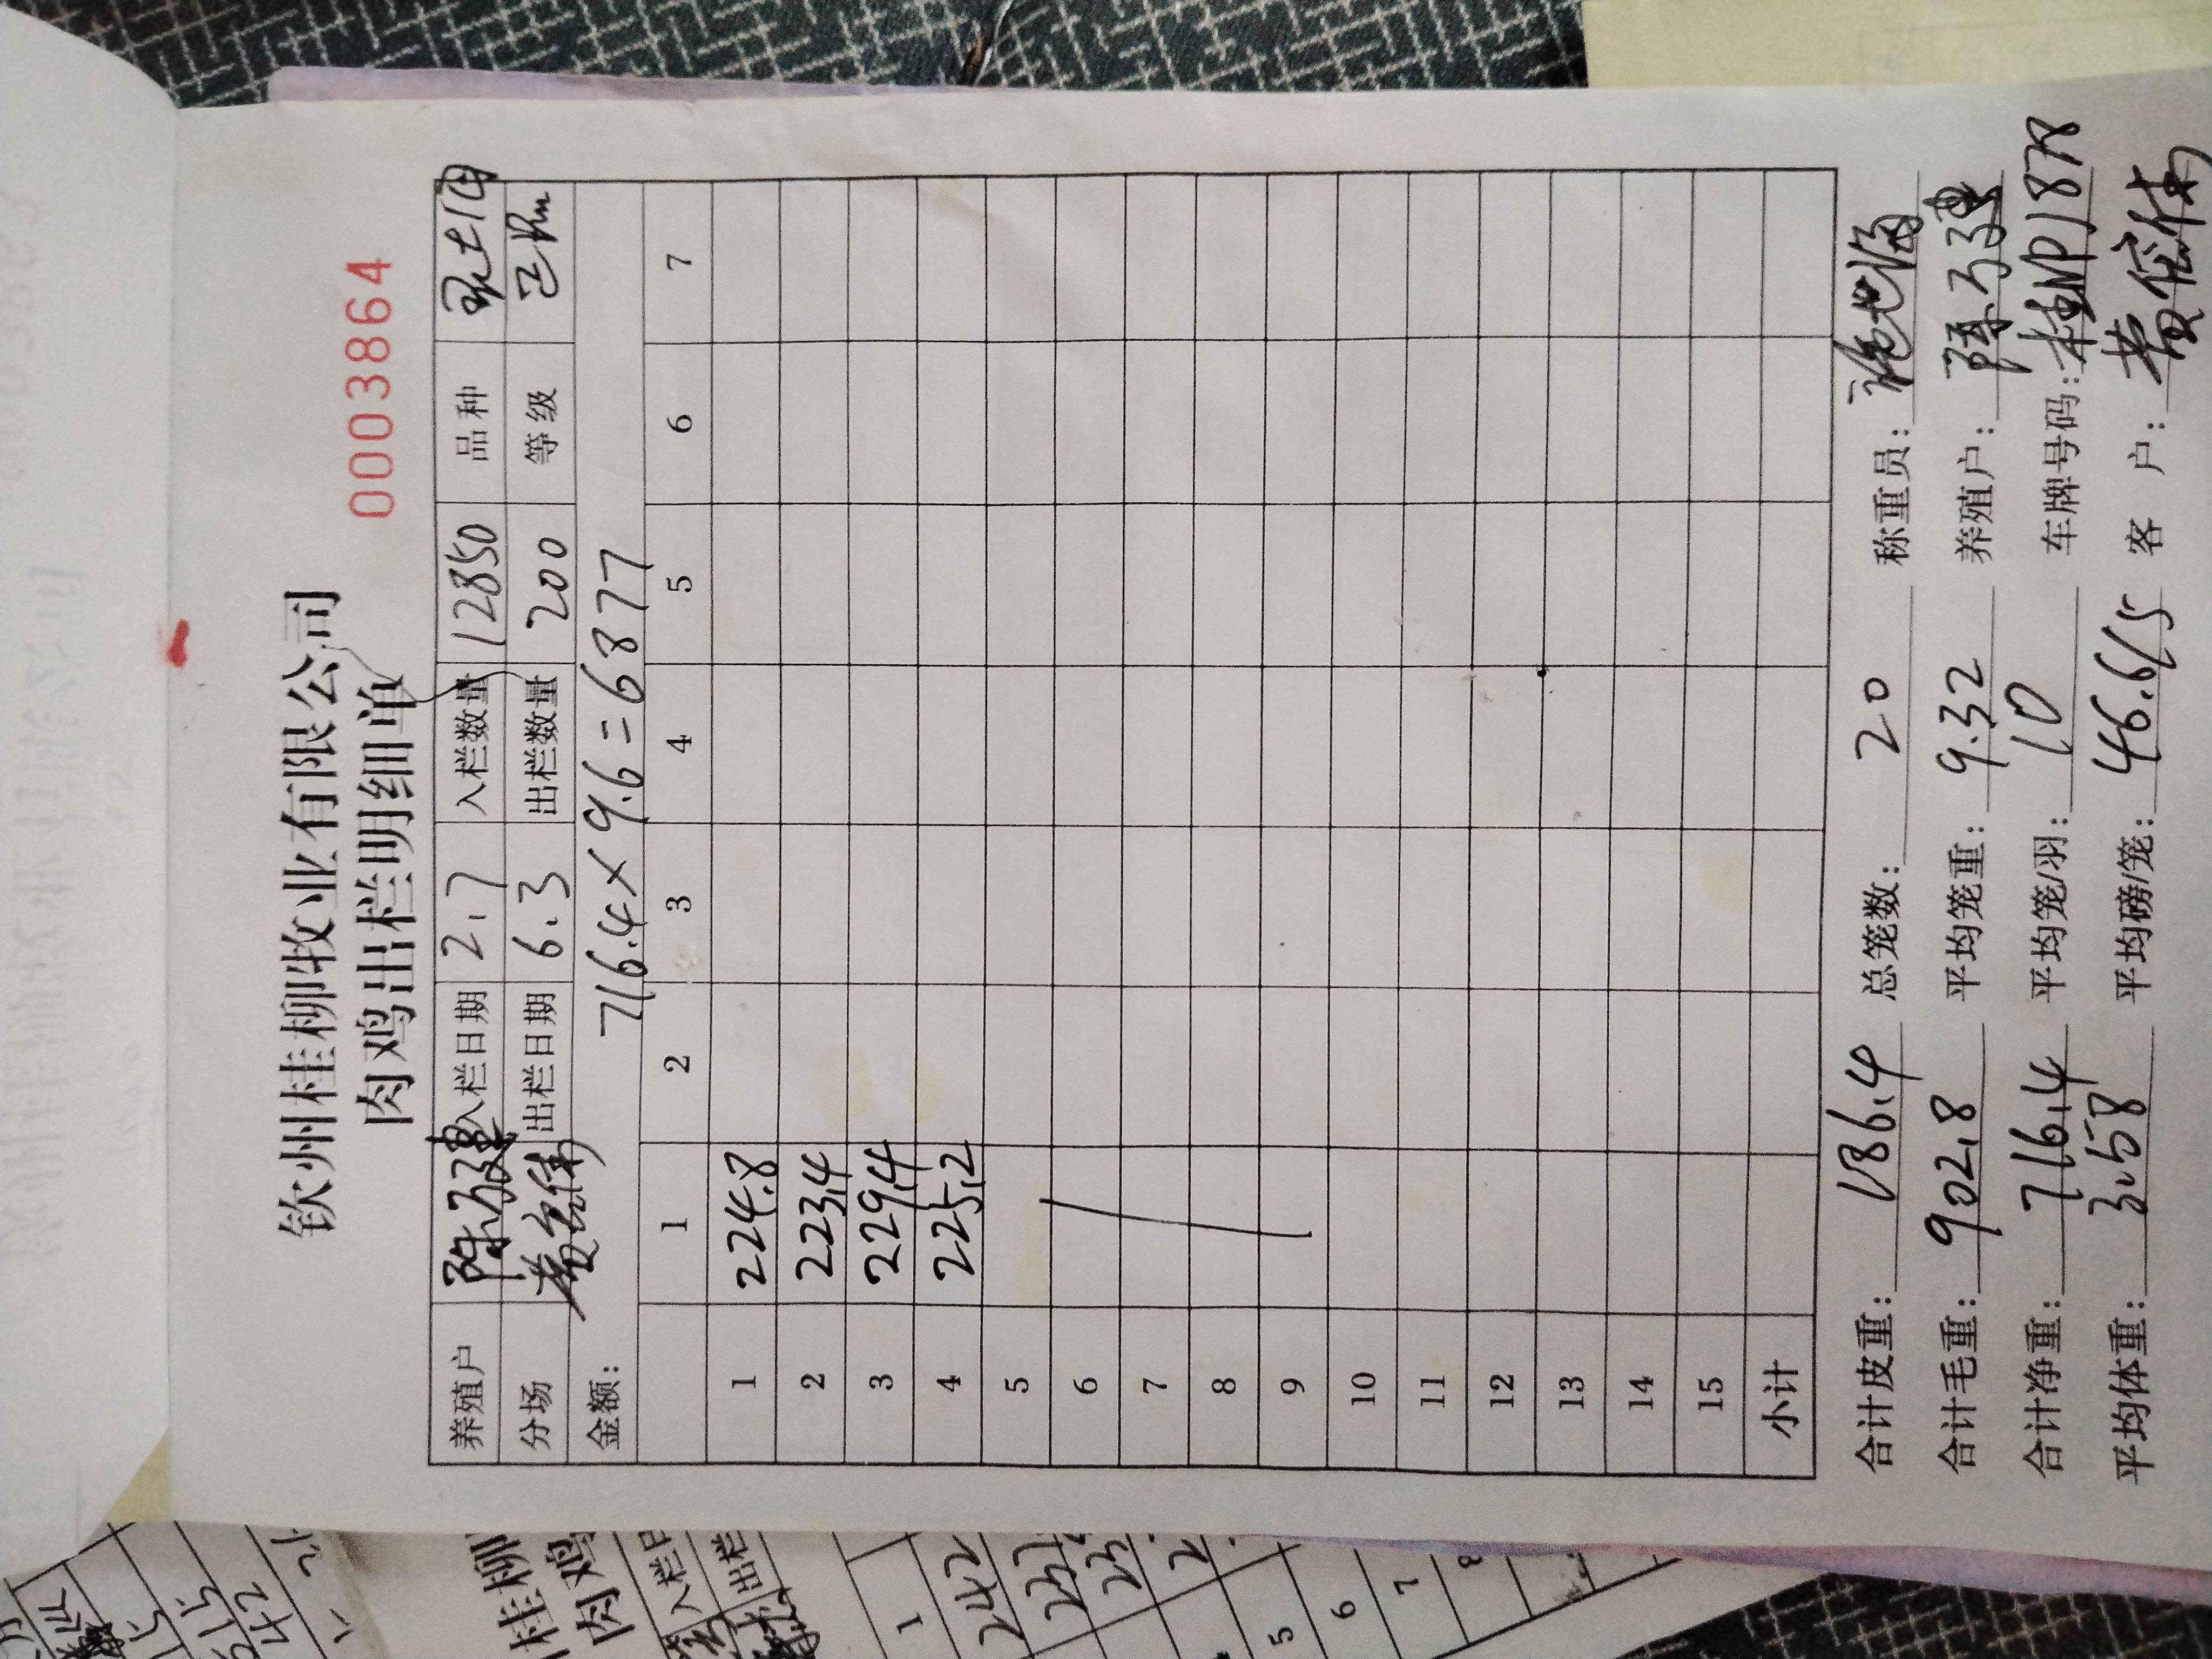 钦州桂柳牧业有限公司
肉鸡出栏明细单
0003864
养殖户 陈 入栏日期 2.7 入栏数量 12850 品种
分场 黄 出栏日期 6.3 出栏数量 200 等级 正
金额: 716.4×9.6=6877
1 2 3 4 5 6 7
1 224.8
2 223.4
3 229.4
4 225.2
5
6
7
8
9
10
11
12
13
14
15
小计
合计皮重: 186.4 总笼数: 20 称重员:
合计毛重: 902.8 平均笼重: 9.32 养殖户: 陈
合计净重: 716.4 平均笼/羽: 10 车牌号码:
平均体重: 3.58 平均磅/笼: 46.6/5 客 户: 黄
桂柳
肉鸡
入栏日
出栏
1
242
5
6
7
8